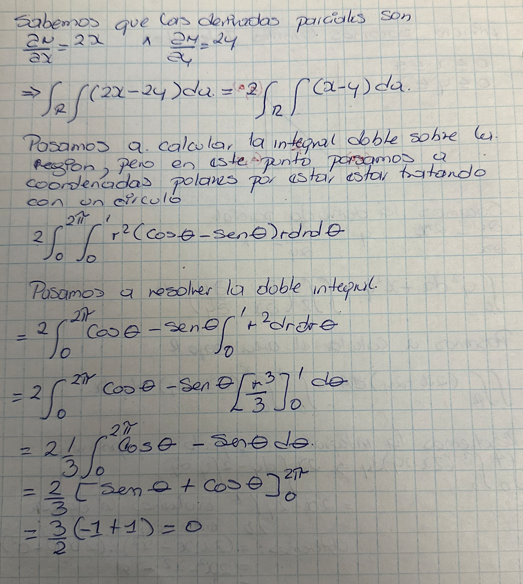 Sabemos que las derivadas parciales son
∂N/∂x = 2x ∧ ∂M/∂y = 2y
⇒ ∫_R ∫ (2x-2y)da = 2∫_R ∫ (x-y)da.
Pasamos a calcular la integral doble sobre la
region, pero en este punto pasamos a
coordenadas polares por estar estar tratando
con un círculo
2∫_0^{2π} ∫_0^1 r²(cosθ-senθ)rdrdθ
Pasamos a resolver la doble integral.
= 2∫_0^{2π} cosθ - senθ ∫_0^1 r²drdrθ
= 2∫_0^{2π} cosθ - senθ [r³/3]_0^1 dθ
= 2 1/3 ∫_0^{2π} cosθ - senθ dθ.
= 2/3 [senθ + cosθ]_0^{2π}
= 3/2 (-1+1) = 0